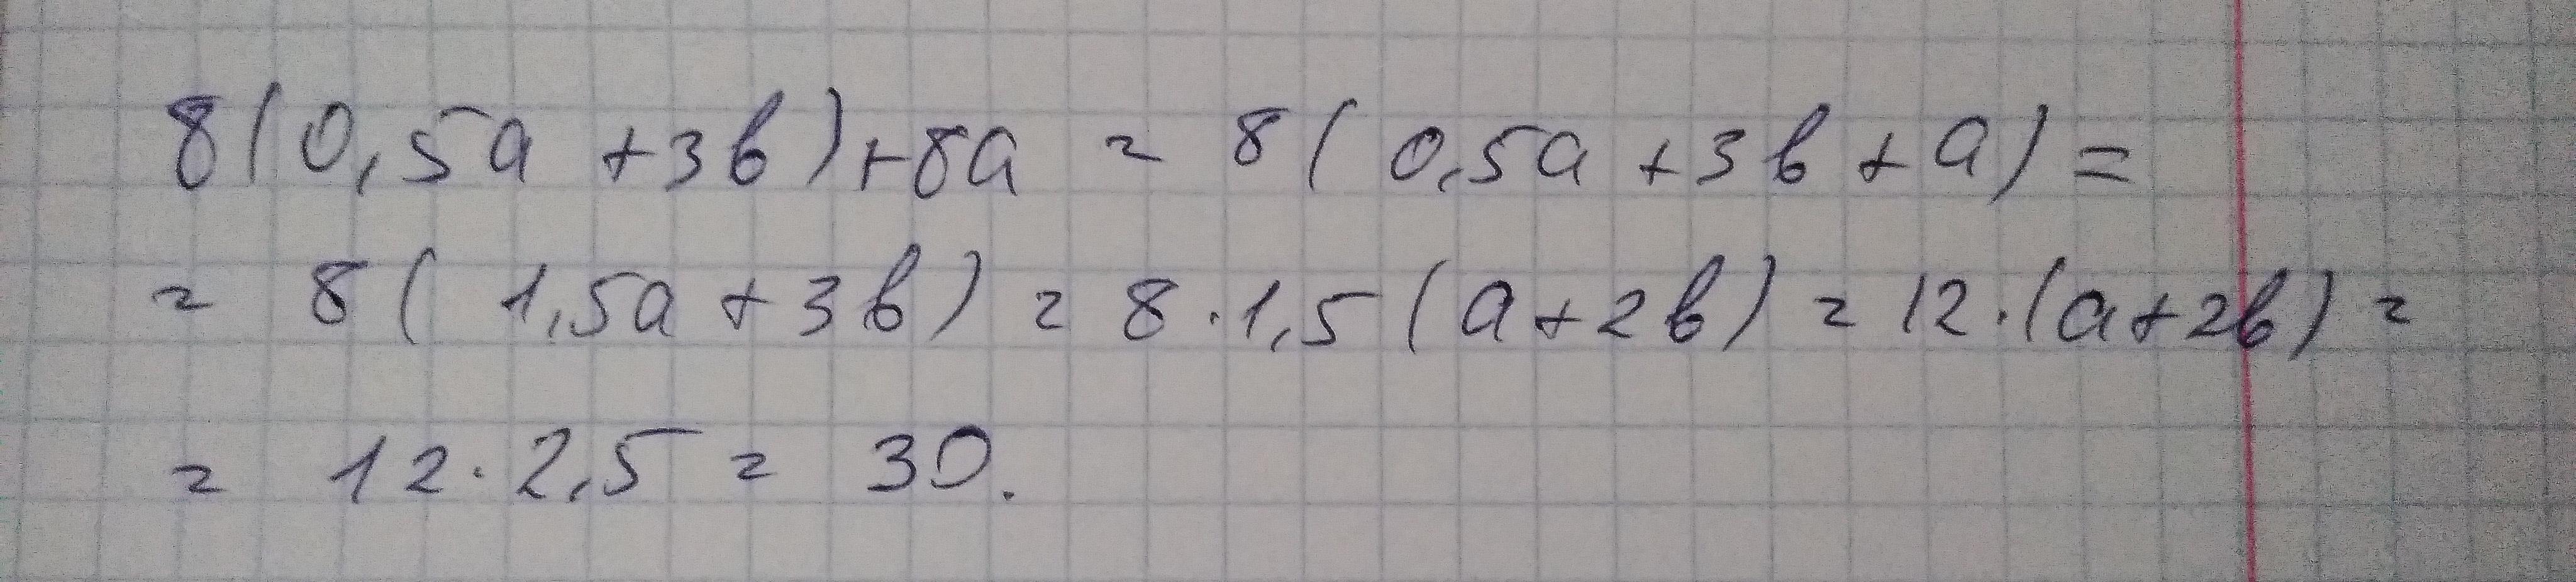 8(0,5a+3b)+8a=8(0,5a+3b+a)=
=8(1,5a+3b)=8·1,5(a+2b)=12·(a+2b)=
=12·2,5=30.